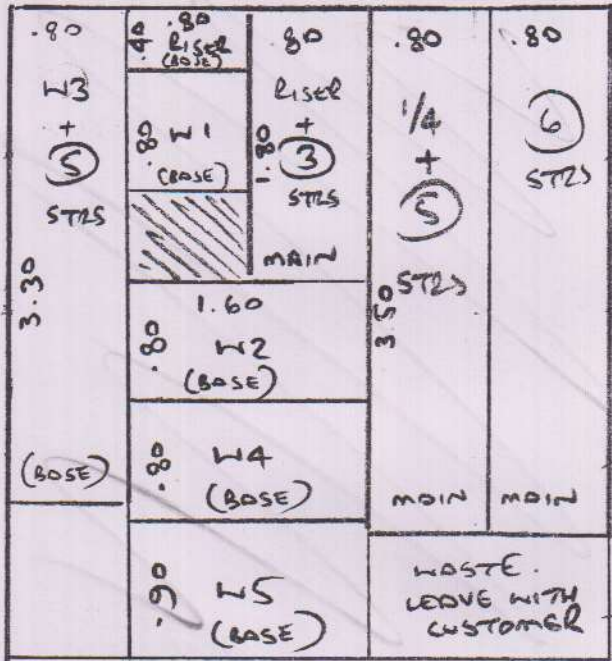 .80
W3
+
5
STRS
3.30
(BASE)
.80
.40
RISER
(BASE)
.80
W1
(BASE)
.80
RISER
+
3
STRS
1.80
MAIN
1.60
.80
W2
(BASE)
.80
W4
(BASE)
.90
W5
(BASE)
.80
1/4
+
5
STRS
3.50
MAIN
.80
6
STRS
MAIN
WASTE.
LEAVE WITH
CUSTOMER